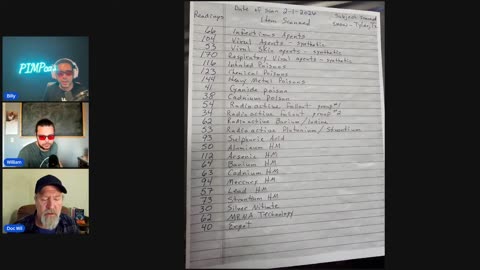 PIMPcas
Billy
William
Doc Wil
Date of scan 2-1-2024
Readings Item Scanned Subject Scanned
66 Infectious Agents
104 Viral Agents - synthetic
53 Viral Skin agents - synthetic
170 Respiratory Viral agents - synthetic
116 Inhaled Poisons
123 Chemical Poisons
144 Heavy Metal Poisons
41 Cyanide poison
38 Cadmium Poison
54 Radioactive fallout group #1
34 Radioactive fallout group #2
62 Radioactive Barium/Iodine
53 Radioactive Plutonium/Strontium
93 Sulphuric Acid
50 Aluminum HM
112 Arsenic HM
69 Barium HM
63 Cadmium HM
94 Mercury HM
57 Lead HM
73 Strontium HM
30 Silver Nitrate
62 MRNA Technology
40 Export